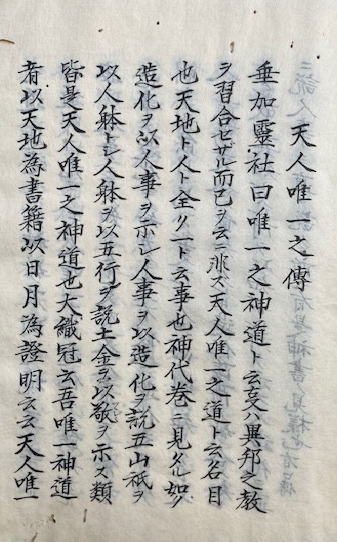 天人唯一之傳
垂加靈社曰唯一之神道ト云亥ハ異邦之教
ヲ習合セザル而已ヲ云ニ非ズ天人唯一之道ト云名目
也天地ト人ト全ク一ト云事也神代巻ニ見タル如ク
造化ヲ以人事ヲ示シ人事ヲ以造化ヲ説五山祇ヲ
以人躰トシ人躰ヲ以五行ヲ説土金ヲ以敬ヲ示ス類
皆是天人唯一之神道也大織冠云吾唯一神道
者以天地為書籍以日月為證明云云天人唯一